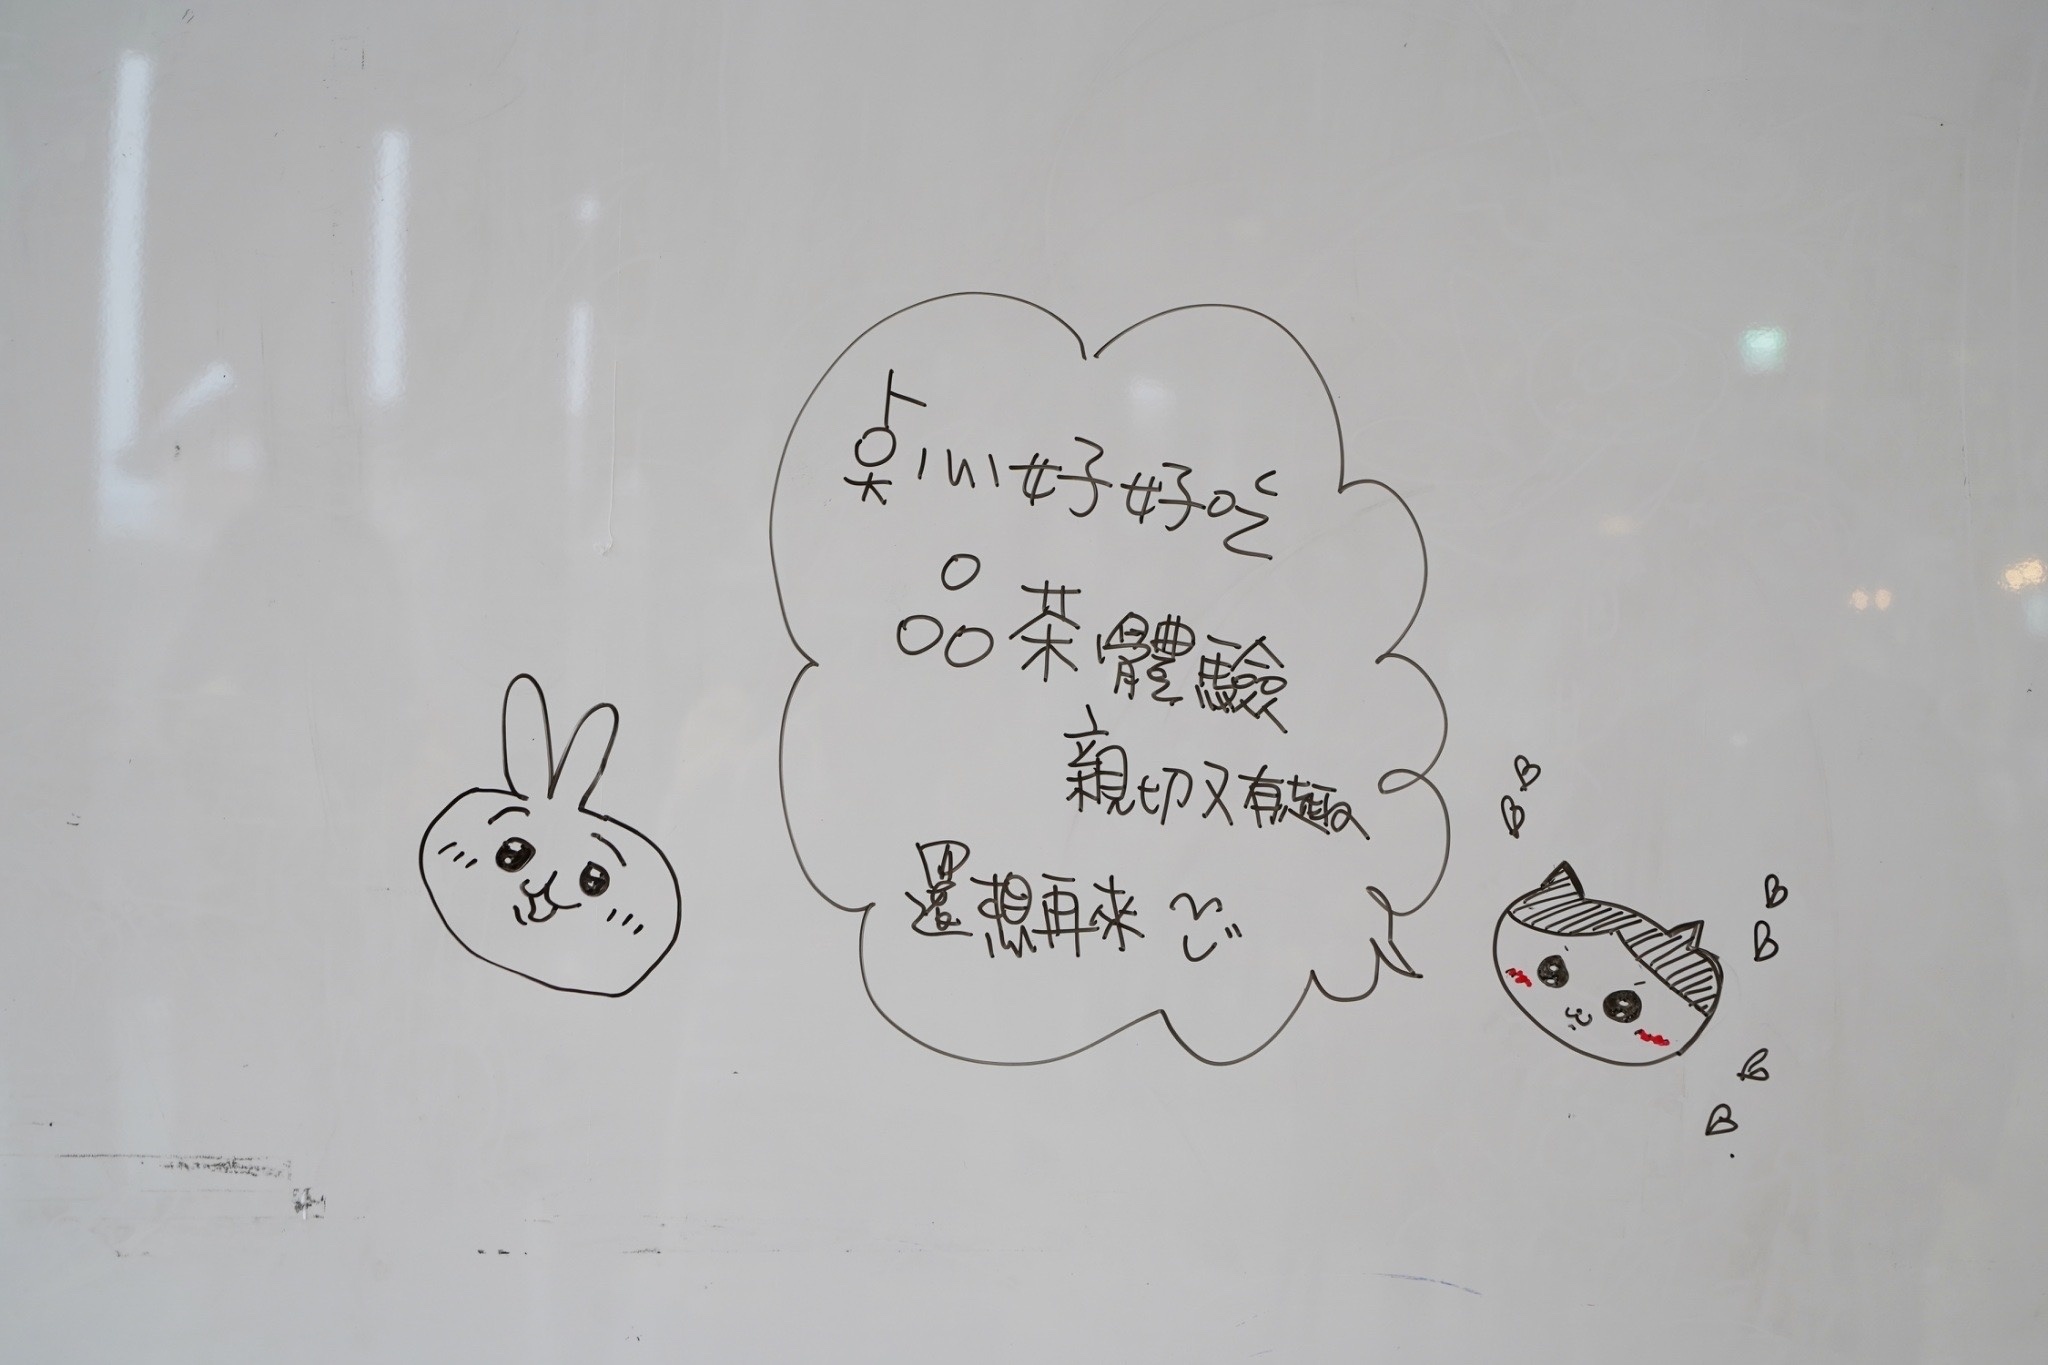 点心好好吃
品茶體驗
親切又有趣
還想再來